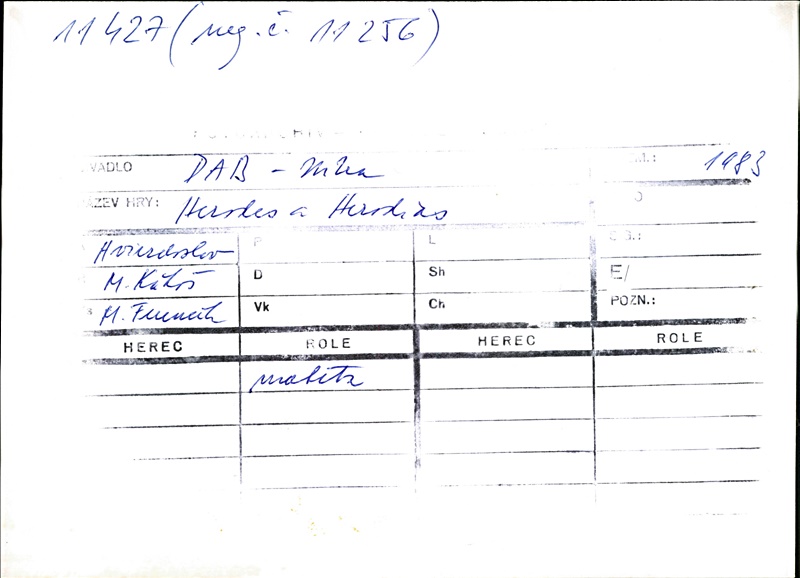 11427 (neg. č. 11256)
VADLO DAB - Nitra M.: 1983
ZEV HRY: Herodes a Herodias
Hviezdoslav P L
M. Kákoš D Sh E/
M. Ferenčík Vk Ch POZN.:
HEREC ROLE HEREC ROLE